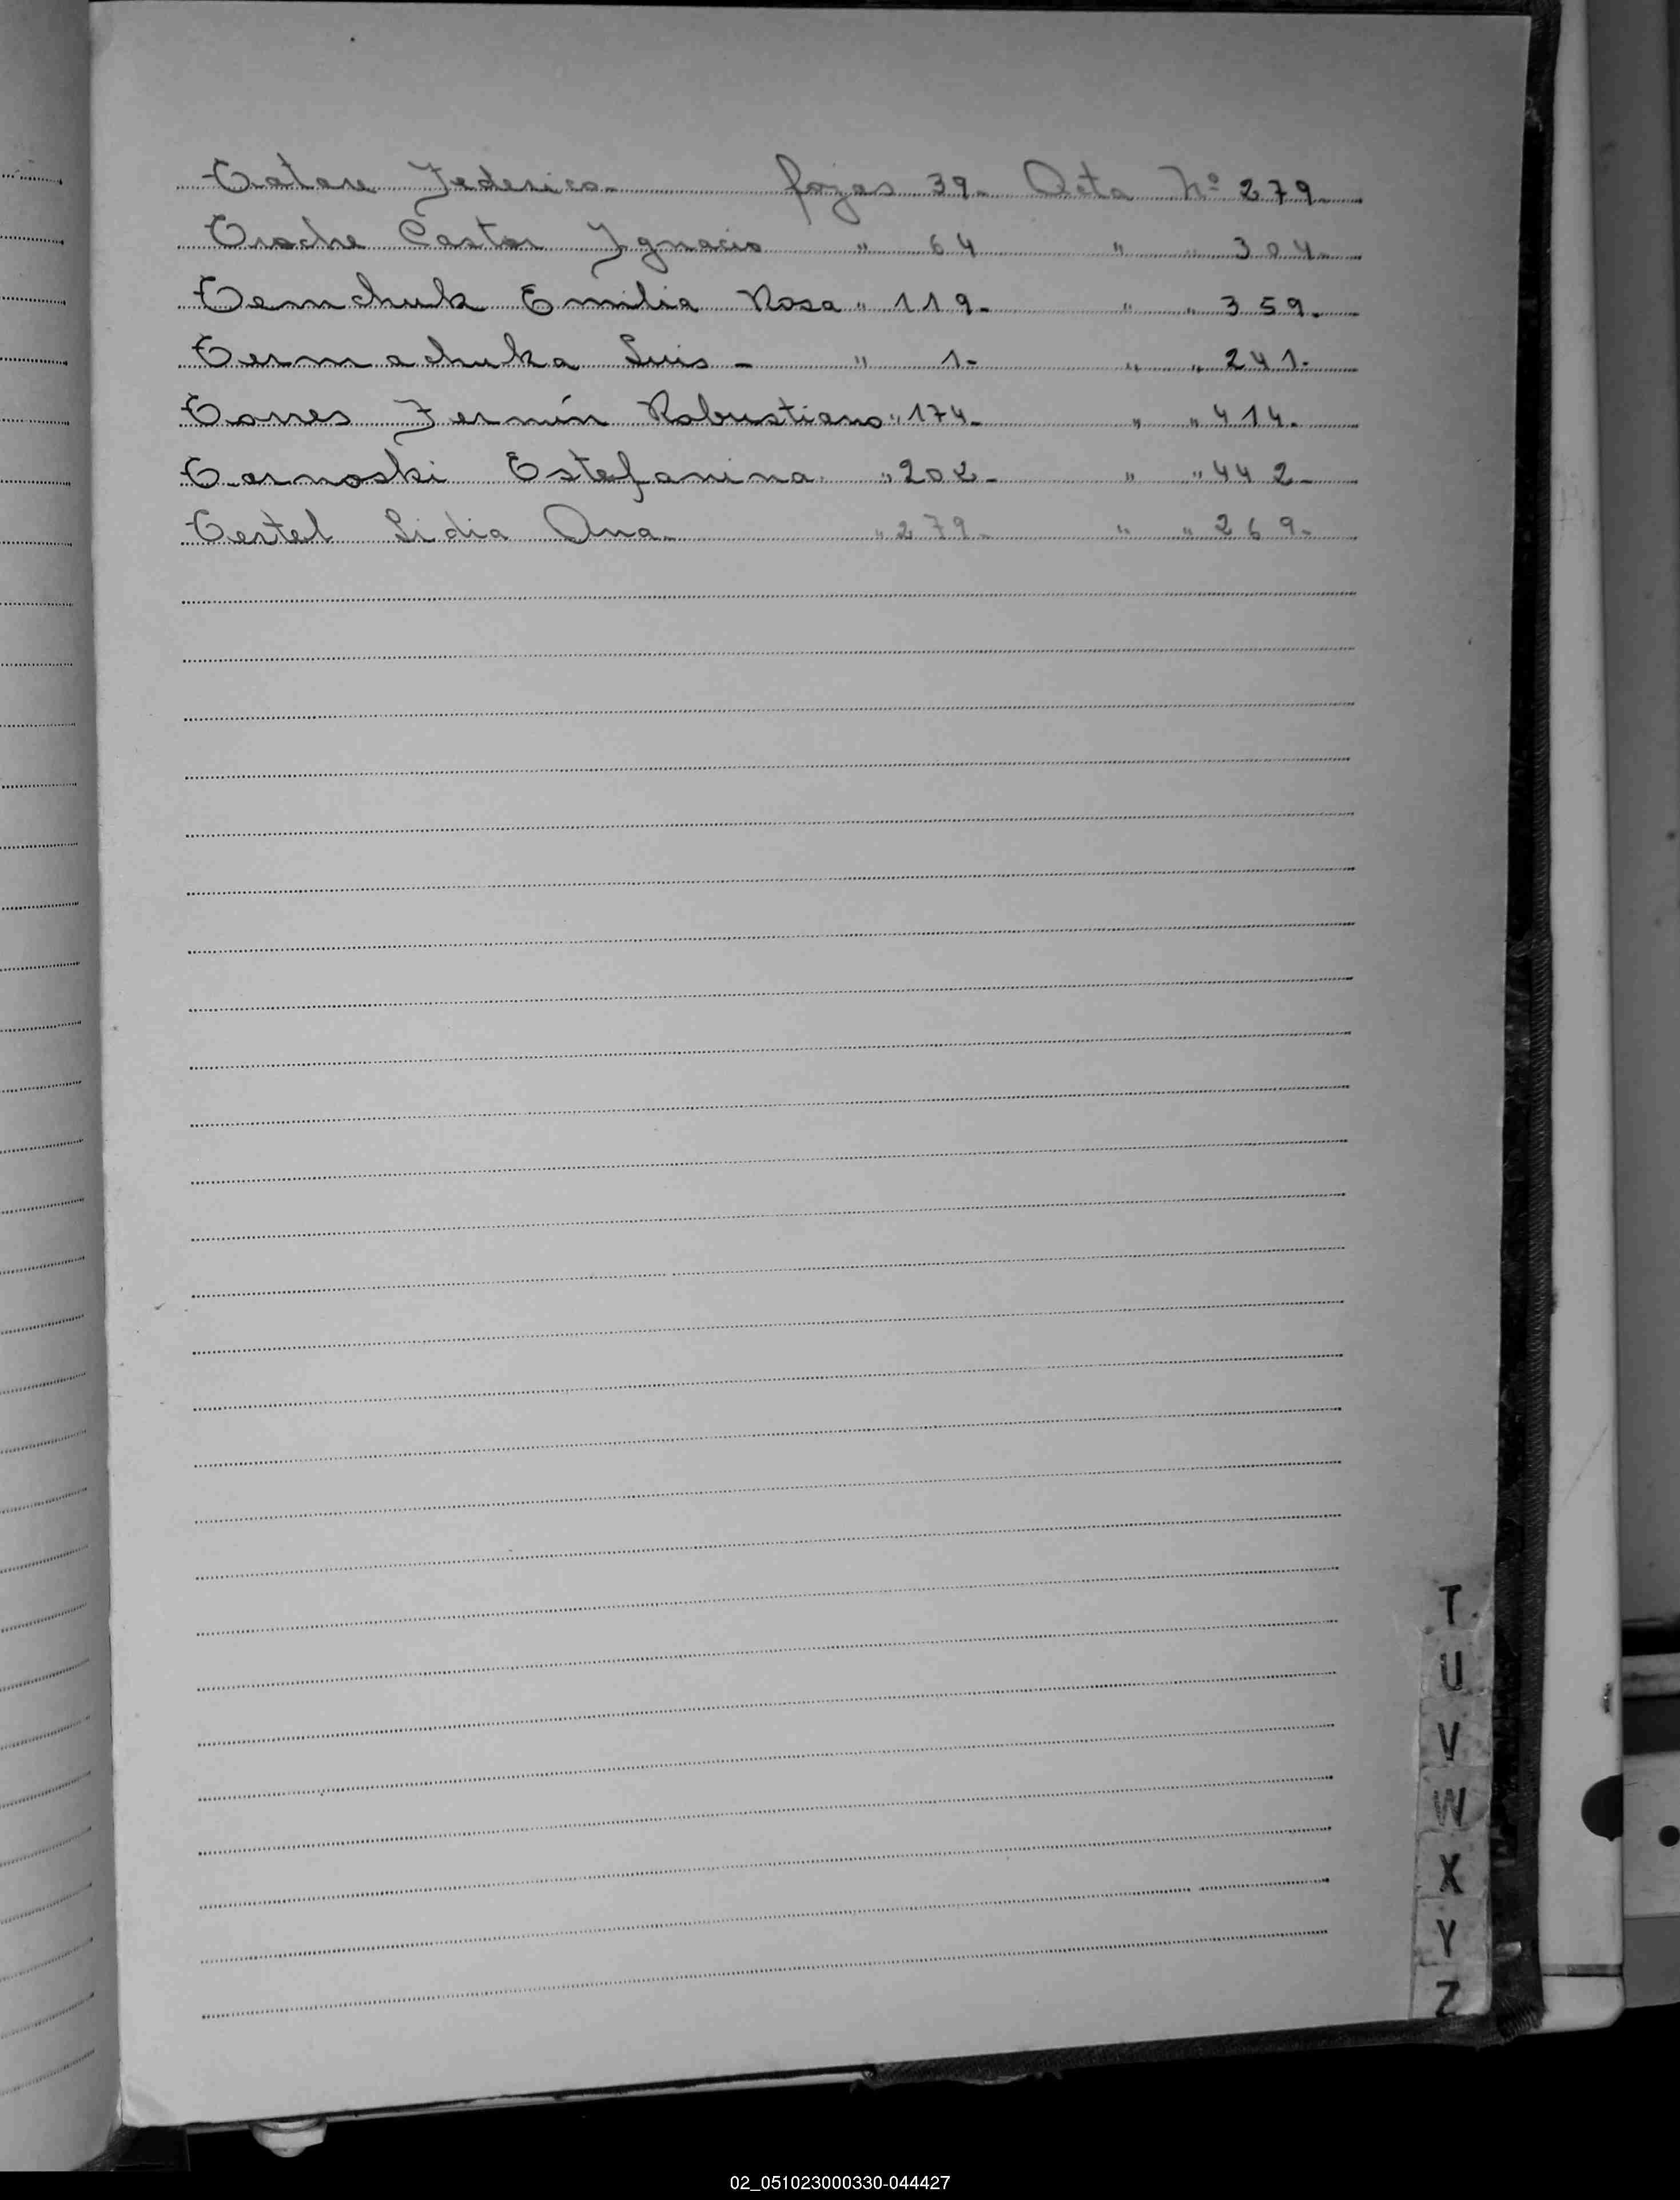 Tatare Federico. fojas 39- Acta Nº 279.
Troche Castor Ygnacio " 64 " " 304.
Temchuk Emilia Rosa " 119- " " 359.
Termachuka Luis - " 1- " " 241-
Torres Fermín Robustiano " 174- " " 414-
Tarnoski Estefanina. " 202- " " 442-
Tertel Lidia Ana. " 279- " " 269-
T.
U
V
W
X
Y
Z
02_051023000330-044427